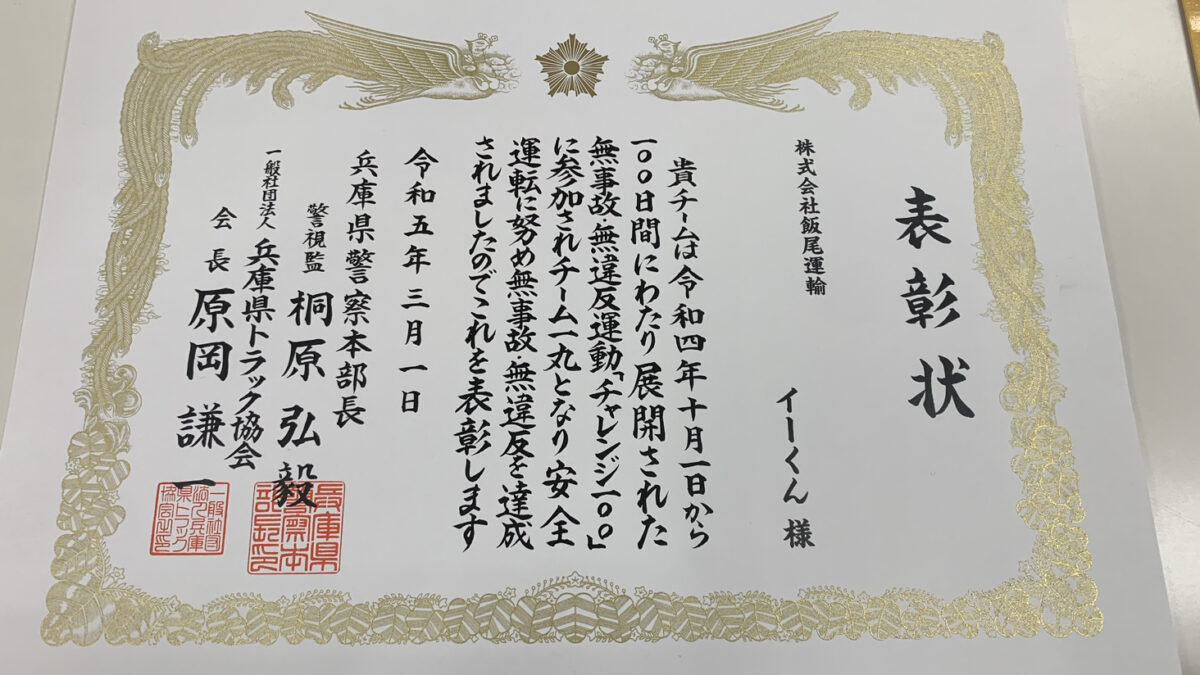 表彰状
株式会社飯尾運輸
イーくん 様
貴チームは令和四年十月一日から
一〇〇日間にわたり展開された
無事故・無違反運動「チャレンジ一〇〇」
に参加されチーム一丸となり安全
運転に努め無事故・無違反を達成
されましたのでこれを表彰します
令和五年三月一日
兵庫県警察本部長
警視監 桐原弘毅
一般社団法人 兵庫県トラック協会
会長 原岡謙一
兵庫県警察本部長印